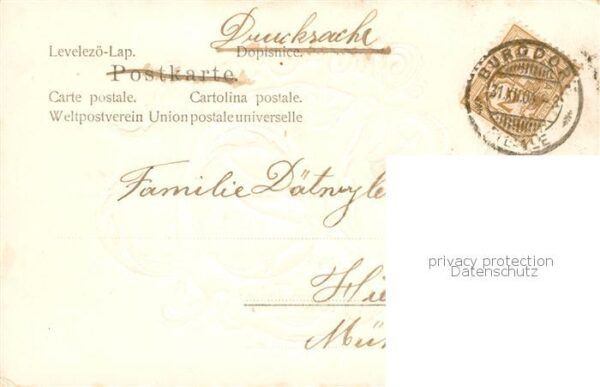 Drucksache
Levelező-Lap. Dopisnice.
Postkarte.
Carte postale. Cartolina postale.
Weltpostverein Union postale universelle
BURGDORF
31.XII.04
Familie
privacy protection
Datenschutz